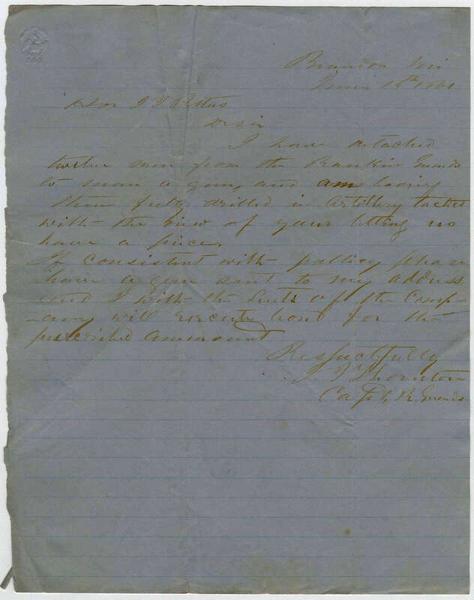 Brandon Mi
June 15th 1861
Gov J J Pettus
D sir
I have detached
twelve men from the Rankin Guards
to man a gun, and am having
them fully drilled in Artillery tactics
with the view of your letting us
have a piece,
If consistent with policy please
have a gun sent to my address
and I with the Lieuts of the Comp-
any will execute bond for the
prescribed amount
Respectfully
Thornton
Capt R. Guards